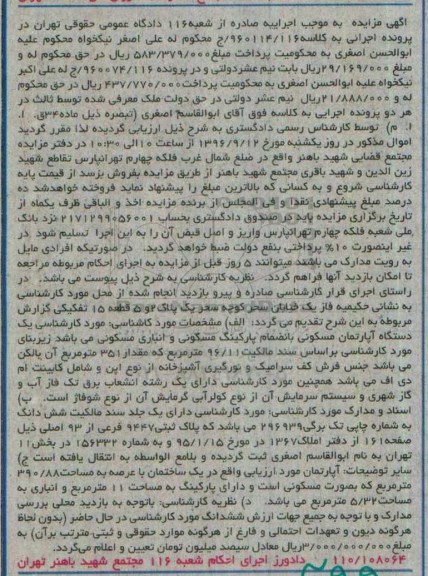 آگهی مزایده به موجب اجراییه صادره از شعبه۱۱۶ دادگاه عمومی حقوقی تهران در
پرونده اجرائی به کلاسه۹۶۰۱۱۴/۱۱۶ج محکوم له علی اصغر نیکخواه محکوم علیه
ابوالحسن اصغری به محکومیت پرداخت مبلغ۵۸۳/۳۷۹/۰۰۰ ریال در حق محکوم له و
مبلغ ۲۹/۱۶۹/۰۰۰ریال بابت نیم عشردولتی و در پرونده ۹۶۰۰۷۴/۱۱۶/ج له علی اکبر
نیکخواه علیه ابوالحسن اصغری به محکومیت پرداخت۴۳۷/۷۷۰/۰۰۰ ریال در حق محکوم
له و ۲۱/۸۸۸/۰۰۰ریال نیم عشر دولتی در حق دولت ملک معرفی شده توسط ثالث در
هر دو پرونده اجرایی به کلاسه فوق آقای ابوالقاسم اصغری (تبصره ذیل ماده۳۴ق. ا.
ا. م) توسط کارشناس رسمی دادگستری به شرح ذیل ارزیابی گردیده لذا مقرر گردید
اموال مذکور در روز یکشنبه مورخ ۱۳۹۶/۹/۱۲ از ساعت ۱۰الی ۱۰:۳۰ در دفتر مزایده
مجتمع قضایی شهید باهنر واقع در ضلع شمال غرب فلکه چهارم تهرانپارس تقاطع شهید
زین الدین و شهید باقری مجتمع شهید باهنر از طریق مزایده بفروش برسد از قیمت پایه
کارشناسی شروع و به کسانی که بالاترین مبلغ را پیشنهاد نماید فروخته خواهدشد ده
درصد مبلغ پیشنهادی نقدا و فی المجلس از برنده مزایده اخذ و الباقی ظرف یکماه از
تاریخ برگزاری مزایده باید در صندوق دادگستری بحساب ۲۱۷۱۲۹۹۰۵۶۰۰۱ نزد بانک
ملی شعبه فلکه چهارم تهرانپارس واریز و اصل فیش آن را به این اجرا تسلیم شود در
غیر اینصورت ۱۰% پرداختی بنفع دولت ضبط خواهد گردید. در صورتیکه افرادی مایل
به رویت مدارک می باشند میتوانند ۵ روز قبل از مزایده به اجرای احکام مربوطه مراجعه
تا امکان بازدید آنها فراهم گردد. نظریه کارشناسی به شرح ذیل پیوست می باشد. در
راستای اجرای قرار کارشناسی صادره و پیرو بازدید انجام شده از محل مورد کارشناسی
به نشانی حکیمیه فاز یک خیابان سحر کوچه سحر یک پلاک ۲و ۵ قطعه ۱۵ تفکیکی گزارش
مربوطه به این شرح تقدیم می گردد: الف) مشخصات مورد کارشناسی: مورد کارشناسی یک
دستگاه آپارتمان مسکونی بانضمام پارکینگ مسکونی و انباری مسکونی می باشد زیربنای
مورد کارشناسی براساس سند مالکیت۹۶/۱۱ مترمربع که مقدار۳۵۱ مترمربع آن بالکن
می باشد جنس فرش کف سرامیک و نورگیری آشپزخانه از نوع اپن و شامل کابینت ام
دی اف می باشد همچنین مورد کارشناسی دارای یک رشته انشعاب برق تک فاز آب و
گاز شهری و سیستم سرمایش آن از نوع کولرآبی گرمایش آن از نوع شوفاژ است. ب)
اسناد و مدارک مورد کارشناسی: مورد کارشناسی دارای یک جلد سند مالکیت شش دانگ
به شماره چاپی تک برگی۲۹۶۹۳۹ می باشد که پلاک ثبتی۹۴۴۷ فرعی از ۹۳ اصلی ذیل
صفحه۱۶۱ از دفتر املاک۱۳۶۷ در مورخ ۹۵/۱/۱۵ و به شماره ۱۵۶۳۳۲ در بخش۱۱
تهران به نام ابوالقاسم اصغری ثبت گردیده و بلامع الواسطه به انتقال یافته است ج)
سایر توضیحات: آپارتمان مورد ارزیابی واقع در یک ساختمان با عرصه به مساحت۳۹۰/۸۸
مترمربع که بصورت مسکونی است و دارای پارکینگ به مساحت ۱۱ مترمربع و انباری به
مساحت۵/۳۲ مترمربع می باشد. د) نظریه کارشناسی: باتوجه به بازدید محلی بررسی
مدارک و با توجه به جمیع جهات ارزش ششدانگ مورد کارشناسی در حال حاضر (بدون لحاظ
هرگونه دیون و تعهدات احتمالی و فارغ از هرگونه موارد حقوقی و ثبتی مترتب برآن) به
مبلغ۳/۰۰۰/۰۰۰/۰۰۰ریال معادل سیصد میلیون تومان تعیین و اعلام می‌گردد.
۱۱۰/۱۰۸۰۶۴ دادورز اجرای احکام شعبه ۱۱۶ مجتمع شهید باهنر تهران